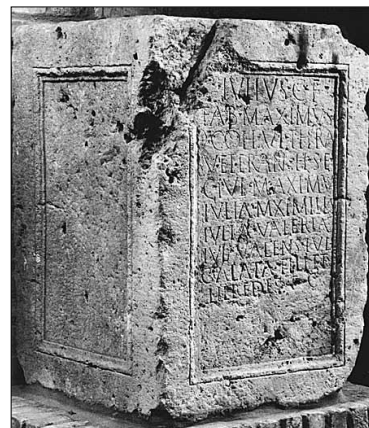 IVLIVS·C·F
FAB·MAXIMVS
COH
VETERAN
C·IVL·MAXIMV
IVLIA·MXIMILL
IVLIA·VALERIA
IVL·VALENS·IVL
GALATA·FIL·ET
HEREDES